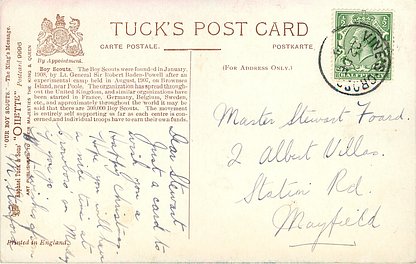 TUCK'S POST CARD
CARTE POSTALE.
POSTKARTE.
By Appointment.
(FOR ADDRESS ONLY.)
Boy Scouts. The Boy Scouts were founded in January,
1908, by Lt. General Sir Robert Baden-Powell after an
experimental camp held in August, 1907, on Brownsea
Island, near Poole. The organization has spread through-
out the United Kingdom, and similar organizations have
been started in France, Germany, Belgium, Sweden,
etc., and approximately throughout the world it may be
said that there are 300,000 Boy Scouts. The movement
is entirely self supporting as far as each centre is con-
cerned, and individual troops have to earn their own funds.
"OUR BOY SCOUTS. The King's Message.
"OILETTE" Postcard 9996
Dear Stewart
Just a card to
wish you a
happy Christmas.
Hope you will have
a nice time at
on
Printed in England.
Master Stewart Foard.
2 Albert Villas.
Station Rd.
Mayfield
HALFPENNY